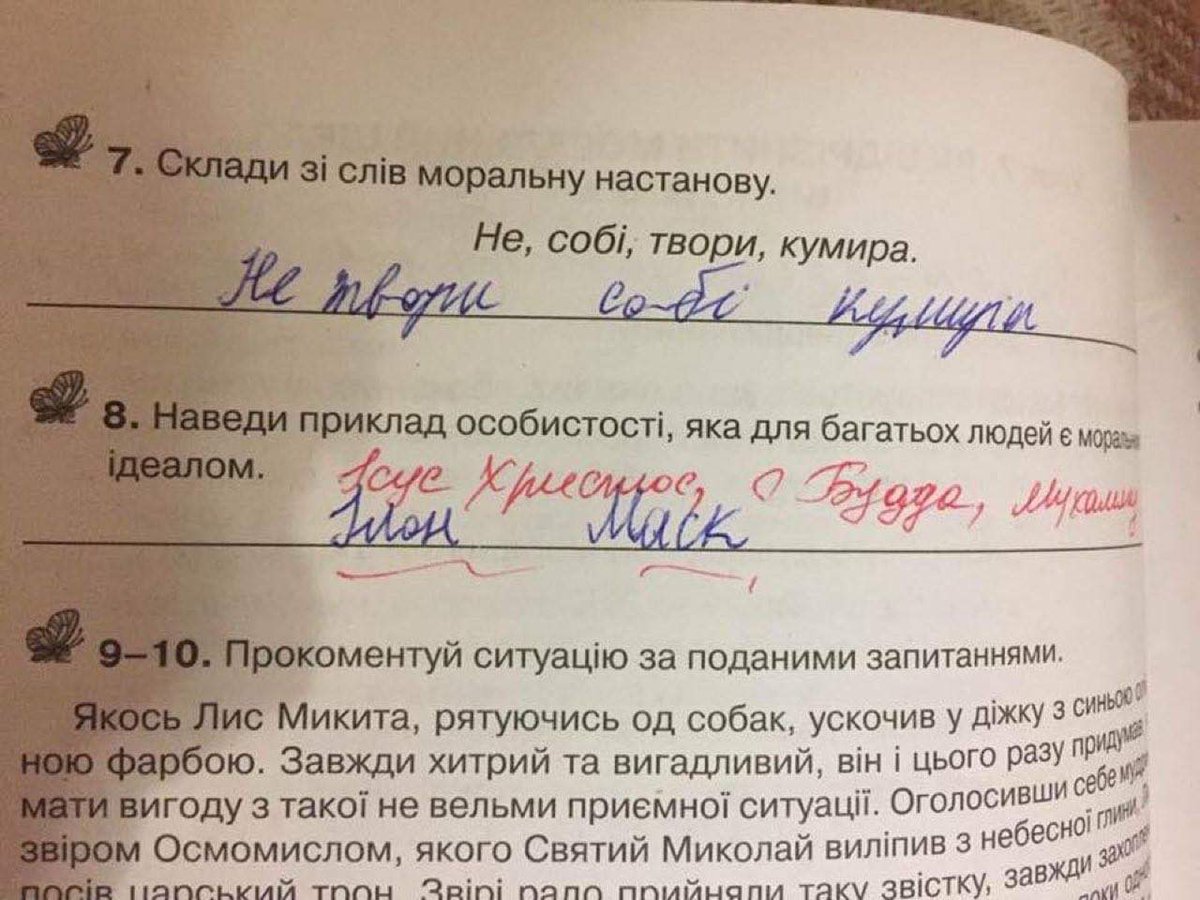 7. Склади зі слів моральну настанову.
Не, собі, твори, кумира.
Не твори собі кумира
8. Наведи приклад особистості, яка для багатьох людей є
ідеалом.
Ісус Христос, Будда,
Ілон Маск
9–10. Прокоментуй ситуацію за поданими запитаннями.
Якось Лис Микита, рятуючись од собак, ускочив у діжку з синьою
ною фарбою. Завжди хитрий та вигадливий, він і цього разу придумав
мати вигоду з такої не вельми приємної ситуації. Оголосивши себе
звіром Осмомислом, якого Святий Миколай виліпив з небесної глини,
посів царський трон. Звірі радо прийняли таку звістку, завжди